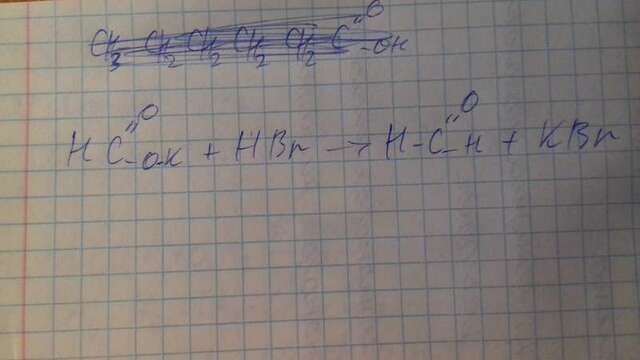 CH3 CH2 CH2 CH2 CH2 C=O-OH
H C=O-OK + HBr → H-C=O-H + KBr